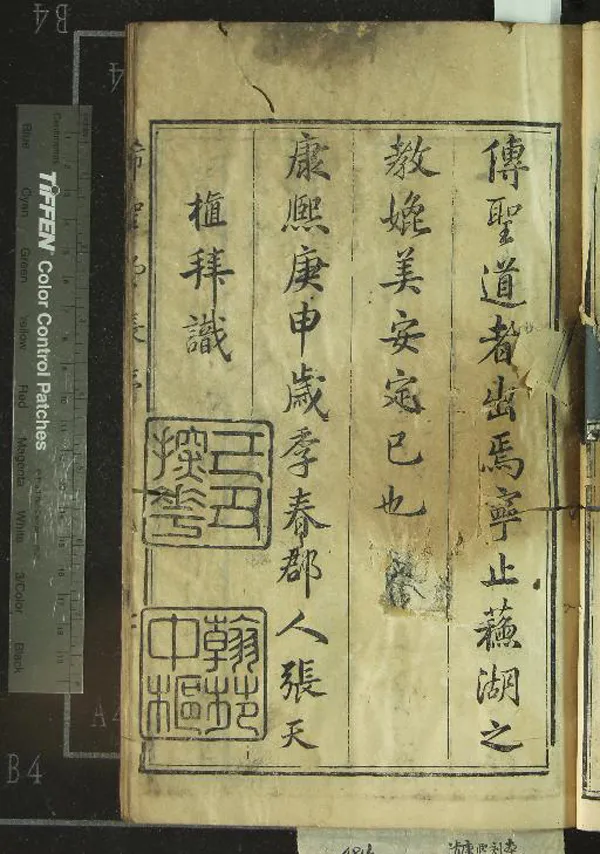 傳聖道者出焉寧止蘇湖之
教媲美安定已也
康熙庚申歲季春郡人張天
植拜識
己丑探花
翰苑中樞
TIFFEN Color Control Patches
Blue Cyan Green Yellow Red Magenta White 3/Color Black
B4
A4
B4